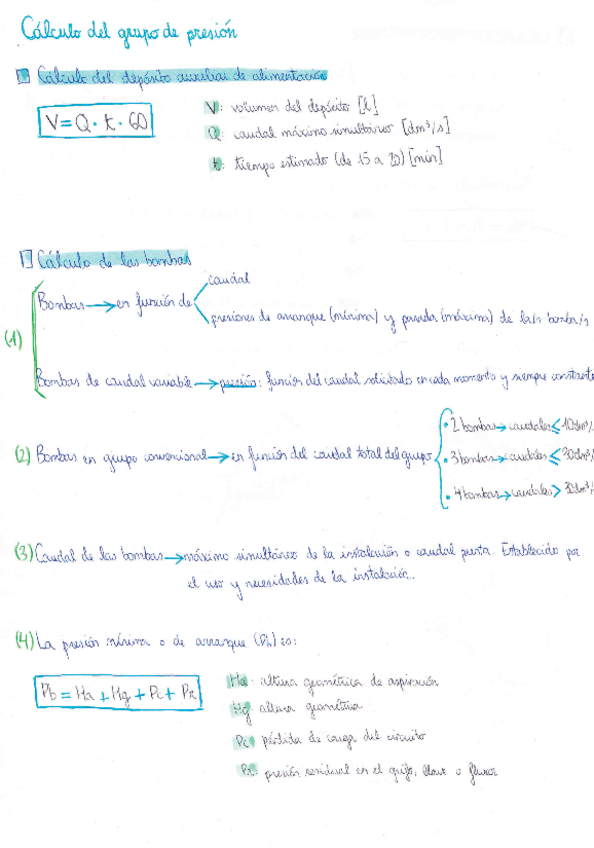 Cálculo del grupo de presión
Cálculo del depósito auxiliar de alimentación
V = Q · t · 60
V: volumen del depósito [l]
Q: caudal máximo simultáneo [dm³/s]
t: tiempo estimado (de 15 a 20) [min]
Cálculo de las bombas
(1)
Bombas → en función de
caudal
presiones de arranque (mínima) y parada (máxima) de la/s bomba/s
Bombas de caudal variable → presión: función del caudal solicitado en cada momento y siempre constante
(2) Bombas en grupo convencional → en función del caudal total del grupo
• 2 bombas → caudales ≤ 10dm³/
• 3 bombas → caudales ≤ 30dm³/
• 4 bombas → caudales > 30dm³/
(3) Caudal de las bombas → máximo simultáneo de la instalación o caudal punta. Establecido por
el uso y necesidades de la instalación.
(4) La presión mínima o de arranque (Pb) es:
Pb = Ha + Hg + Pc + Pr
Ha: altura geométrica de aspiración
Hg: altura geométrica
Pc: pérdida de carga del circuito
Pr: presión residual en el grifo, llave o fluxor